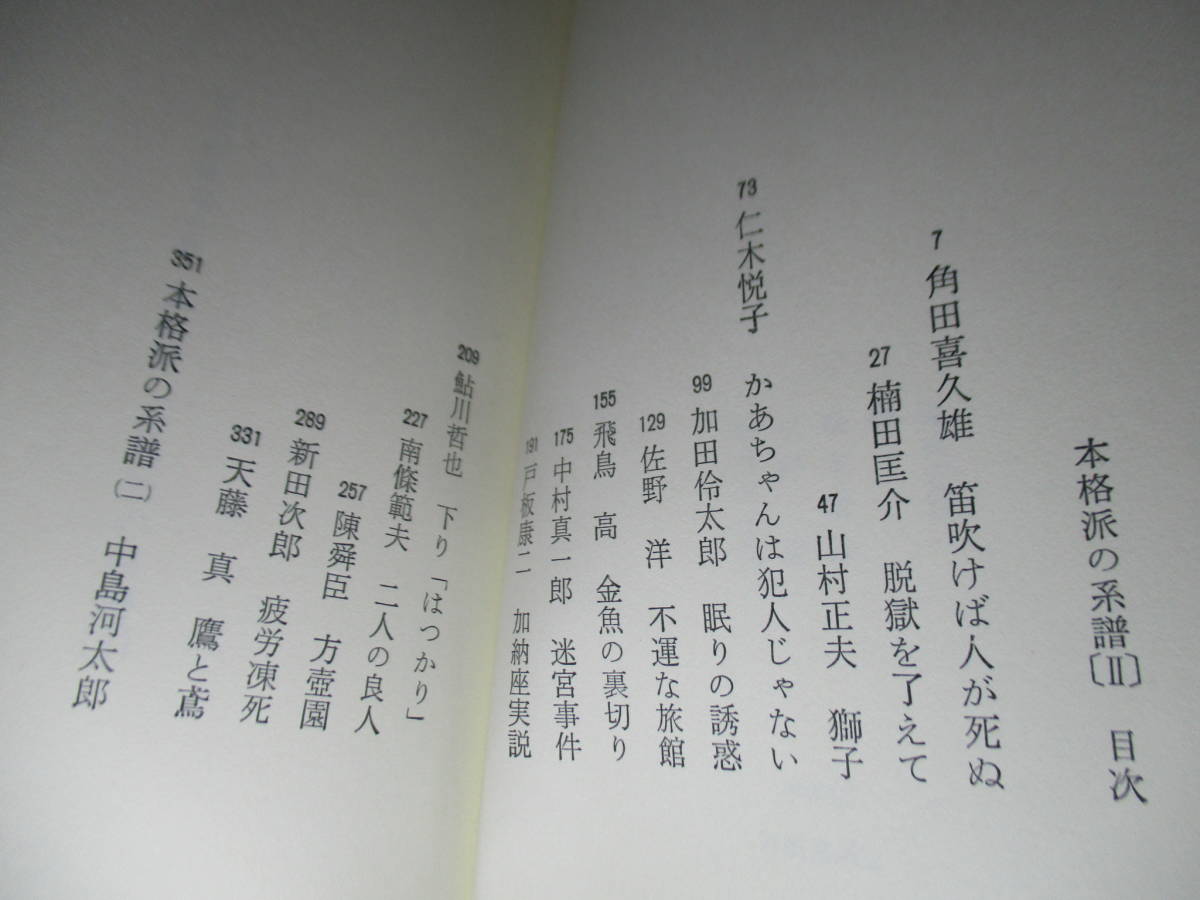 本格派の系譜〔Ⅱ〕 目次
7 角田喜久雄 笛吹けば人が死ぬ
27 楠田匡介 脱獄を了えて
47 山村正夫 獅子
73 仁木悦子 かあちゃんは犯人じゃない
99 加田伶太郎 眠りの誘惑
129 佐野 洋 不運な旅館
155 飛鳥 高 金魚の裏切り
175 中村真一郎 迷宮事件
191 戸板康二 加納座実説
209 鮎川哲也 下り「はつかり」
227 南條範夫 二人の良人
257 陳舜臣 方壺園
289 新田次郎 疲労凍死
331 天藤 真 鷹と鳶
351 本格派の系譜(二) 中島河太郎